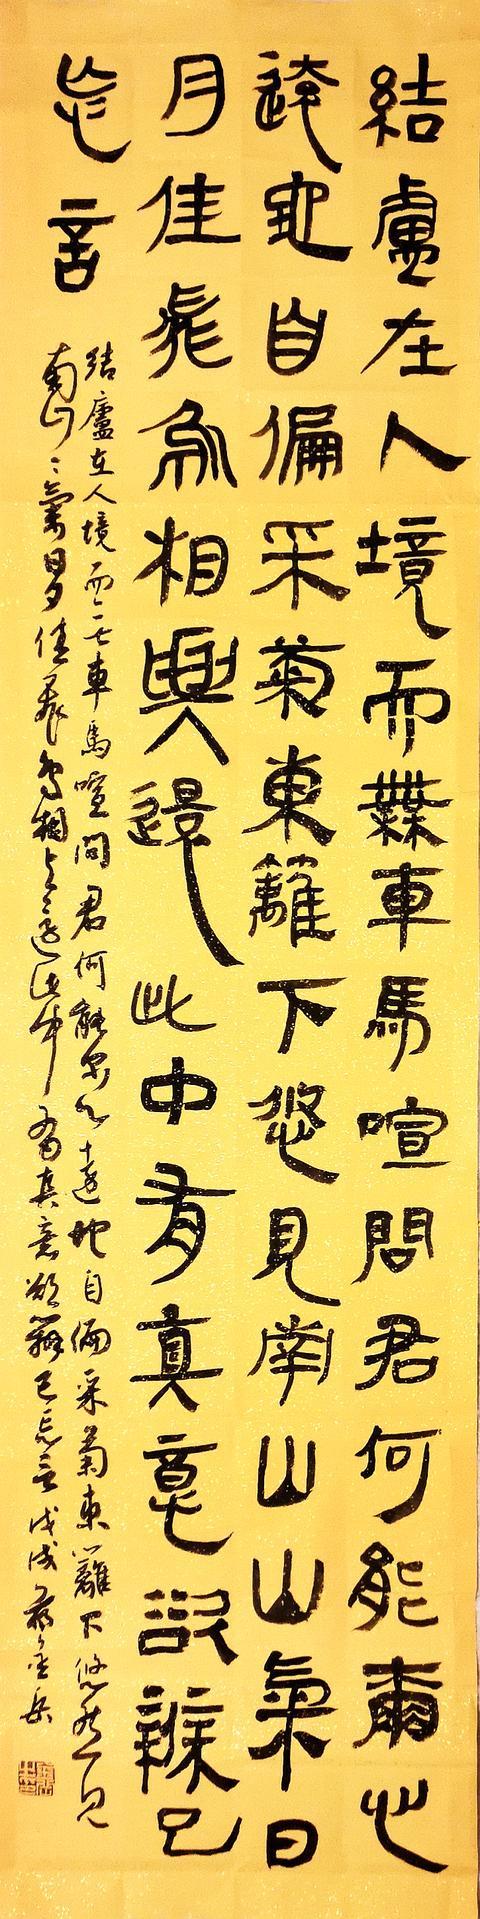 結盧在人境而無車馬喧問君何能爾心
遠地自偏采菊東籬下悠見南山山氣日
月佳飛鳥相與還此中有真意欲辨已
忘言
結廬在人境而無車馬喧問君何能尔心遠地自偏采菊東籬下悠然見
南山〻氣日夕佳飛鳥相與還此中有真意欲辨已忘言戊戌